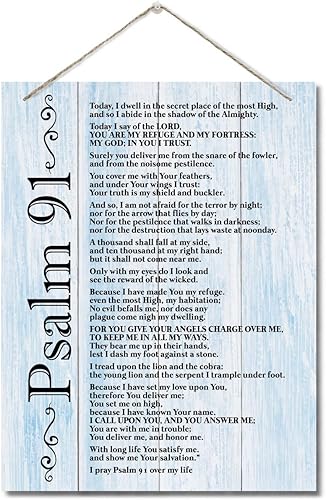 Psalm 91
Today, I dwell in the secret place of the most High,
and so I abide in the shadow of the Almighty.
Today I say of the LORD,
YOU ARE MY REFUGE AND MY FORTRESS:
MY GOD; IN YOU I TRUST.
Surely you deliver me from the snare of the fowler,
and from the noisome pestilence.
You cover me with Your feathers,
and under Your wings I trust:
Your truth is my shield and buckler.
And so, I am not afraid for the terror by night;
nor for the arrow that flies by day;
Nor for the pestilence that walks in darkness;
nor for the destruction that lays waste at noonday.
A thousand shall fall at my side,
and ten thousand at my right hand;
but it shall not come near me.
Only with my eyes do I look and
see the reward of the wicked.
Because I have made You my refuge.
even the most High, my habitation;
No evil befalls me, nor does any
plague come nigh my dwelling,
FOR YOU GIVE YOUR ANGELS CHARGE OVER ME,
TO KEEP ME IN ALL MY WAYS.
They bear me up in their hands,
lest I dash my foot against a stone.
I tread upon the lion and the cobra:
the young lion and the serpent I trample under foot.
Because I have set my love upon You,
therefore You deliver me;
You set me on high,
because I have known Your name.
I CALL UPON YOU, AND YOU ANSWER ME;
You are with me in trouble;
You deliver me, and honor me.
With long life You satisfy me,
and show me Your salvation."
I pray Psalm 91 over my life